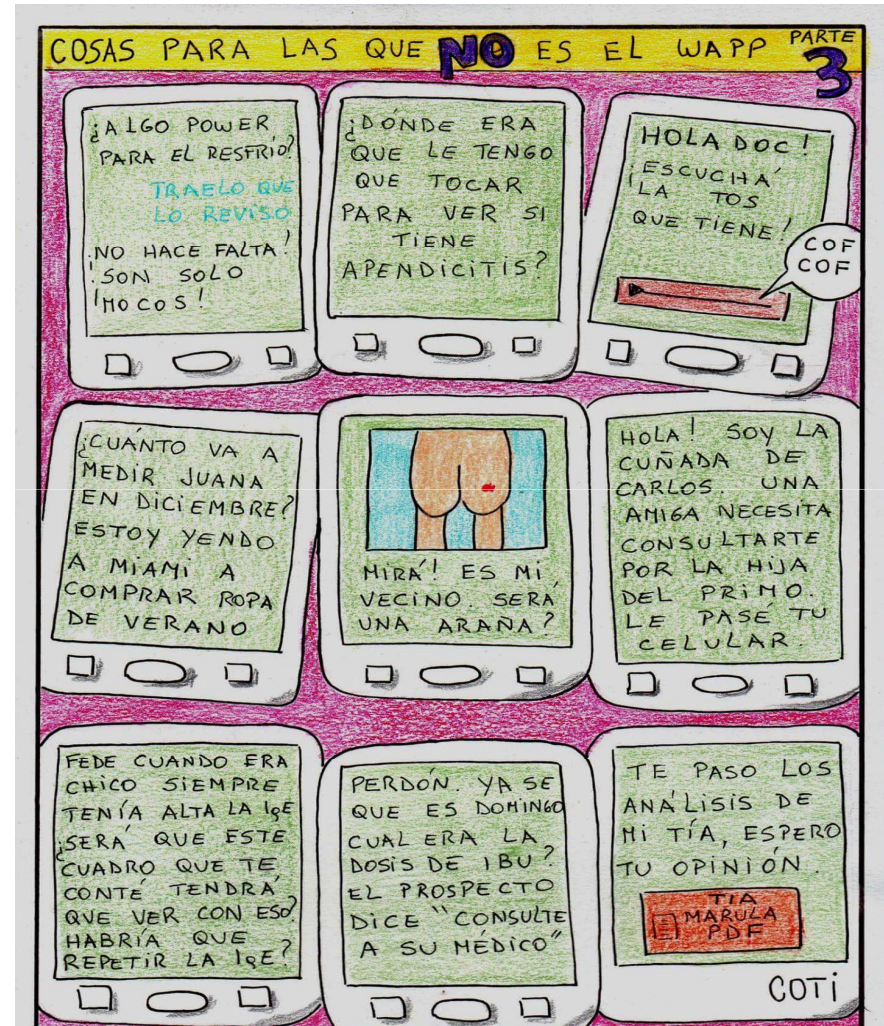 COSAS PARA LAS QUE NO ES EL WAPP PARTE 3
¿ALGO POWER
PARA EL RESFRÍO?
TRAELO QUE
LO REVISO
¡NO HACE FALTA!
¡SON SOLO
MOCOS!
¿DÓNDE ERA
QUE LE TENGO
QUE TOCAR
PARA VER SI
TIENE
APENDICITIS?
HOLA DOC!
¡ESCUCHÁ
LA TOS
QUE TIENE!
COF
COF
¿CUÁNTO VA A
MEDIR JUANA
EN DICIEMBRE?
ESTOY YENDO
A MIAMI A
COMPRAR ROPA
DE VERANO
MIRÁ! ES MI
VECINO. SERÁ
UNA ARAÑA?
HOLA! SOY LA
CUÑADA DE
CARLOS. UNA
AMIGA NECESITA
CONSULTARTE
POR LA HIJA
DEL PRIMO.
LE PASÉ TU
CELULAR.
FEDE CUANDO ERA
CHICO SIEMPRE
TENÍA ALTA LA IgE
¿SERÁ QUE ESTE
CUADRO QUE TE
CONTÉ TENDRÁ
QUE VER CON ESO?
HABRÍA QUE
REPETIR LA IgE?
PERDÓN. YA SE
QUE ES DOMINGO
CUAL ERA LA
DOSIS DE IBU?
EL PROSPECTO
DICE "CONSULTE
A SU MÉDICO"
TE PASO LOS
ANÁLISIS DE
MI TÍA, ESPERO
TU OPINIÓN.
TIA
MARULA
PDF
COTi